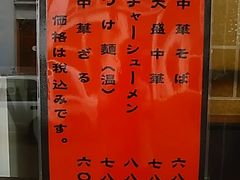 中華そば 六八
大盛中華 七八
チャーシューメン 八八
つけ麺（温） 七八
中華ざる 六〇
価格は税込みです。